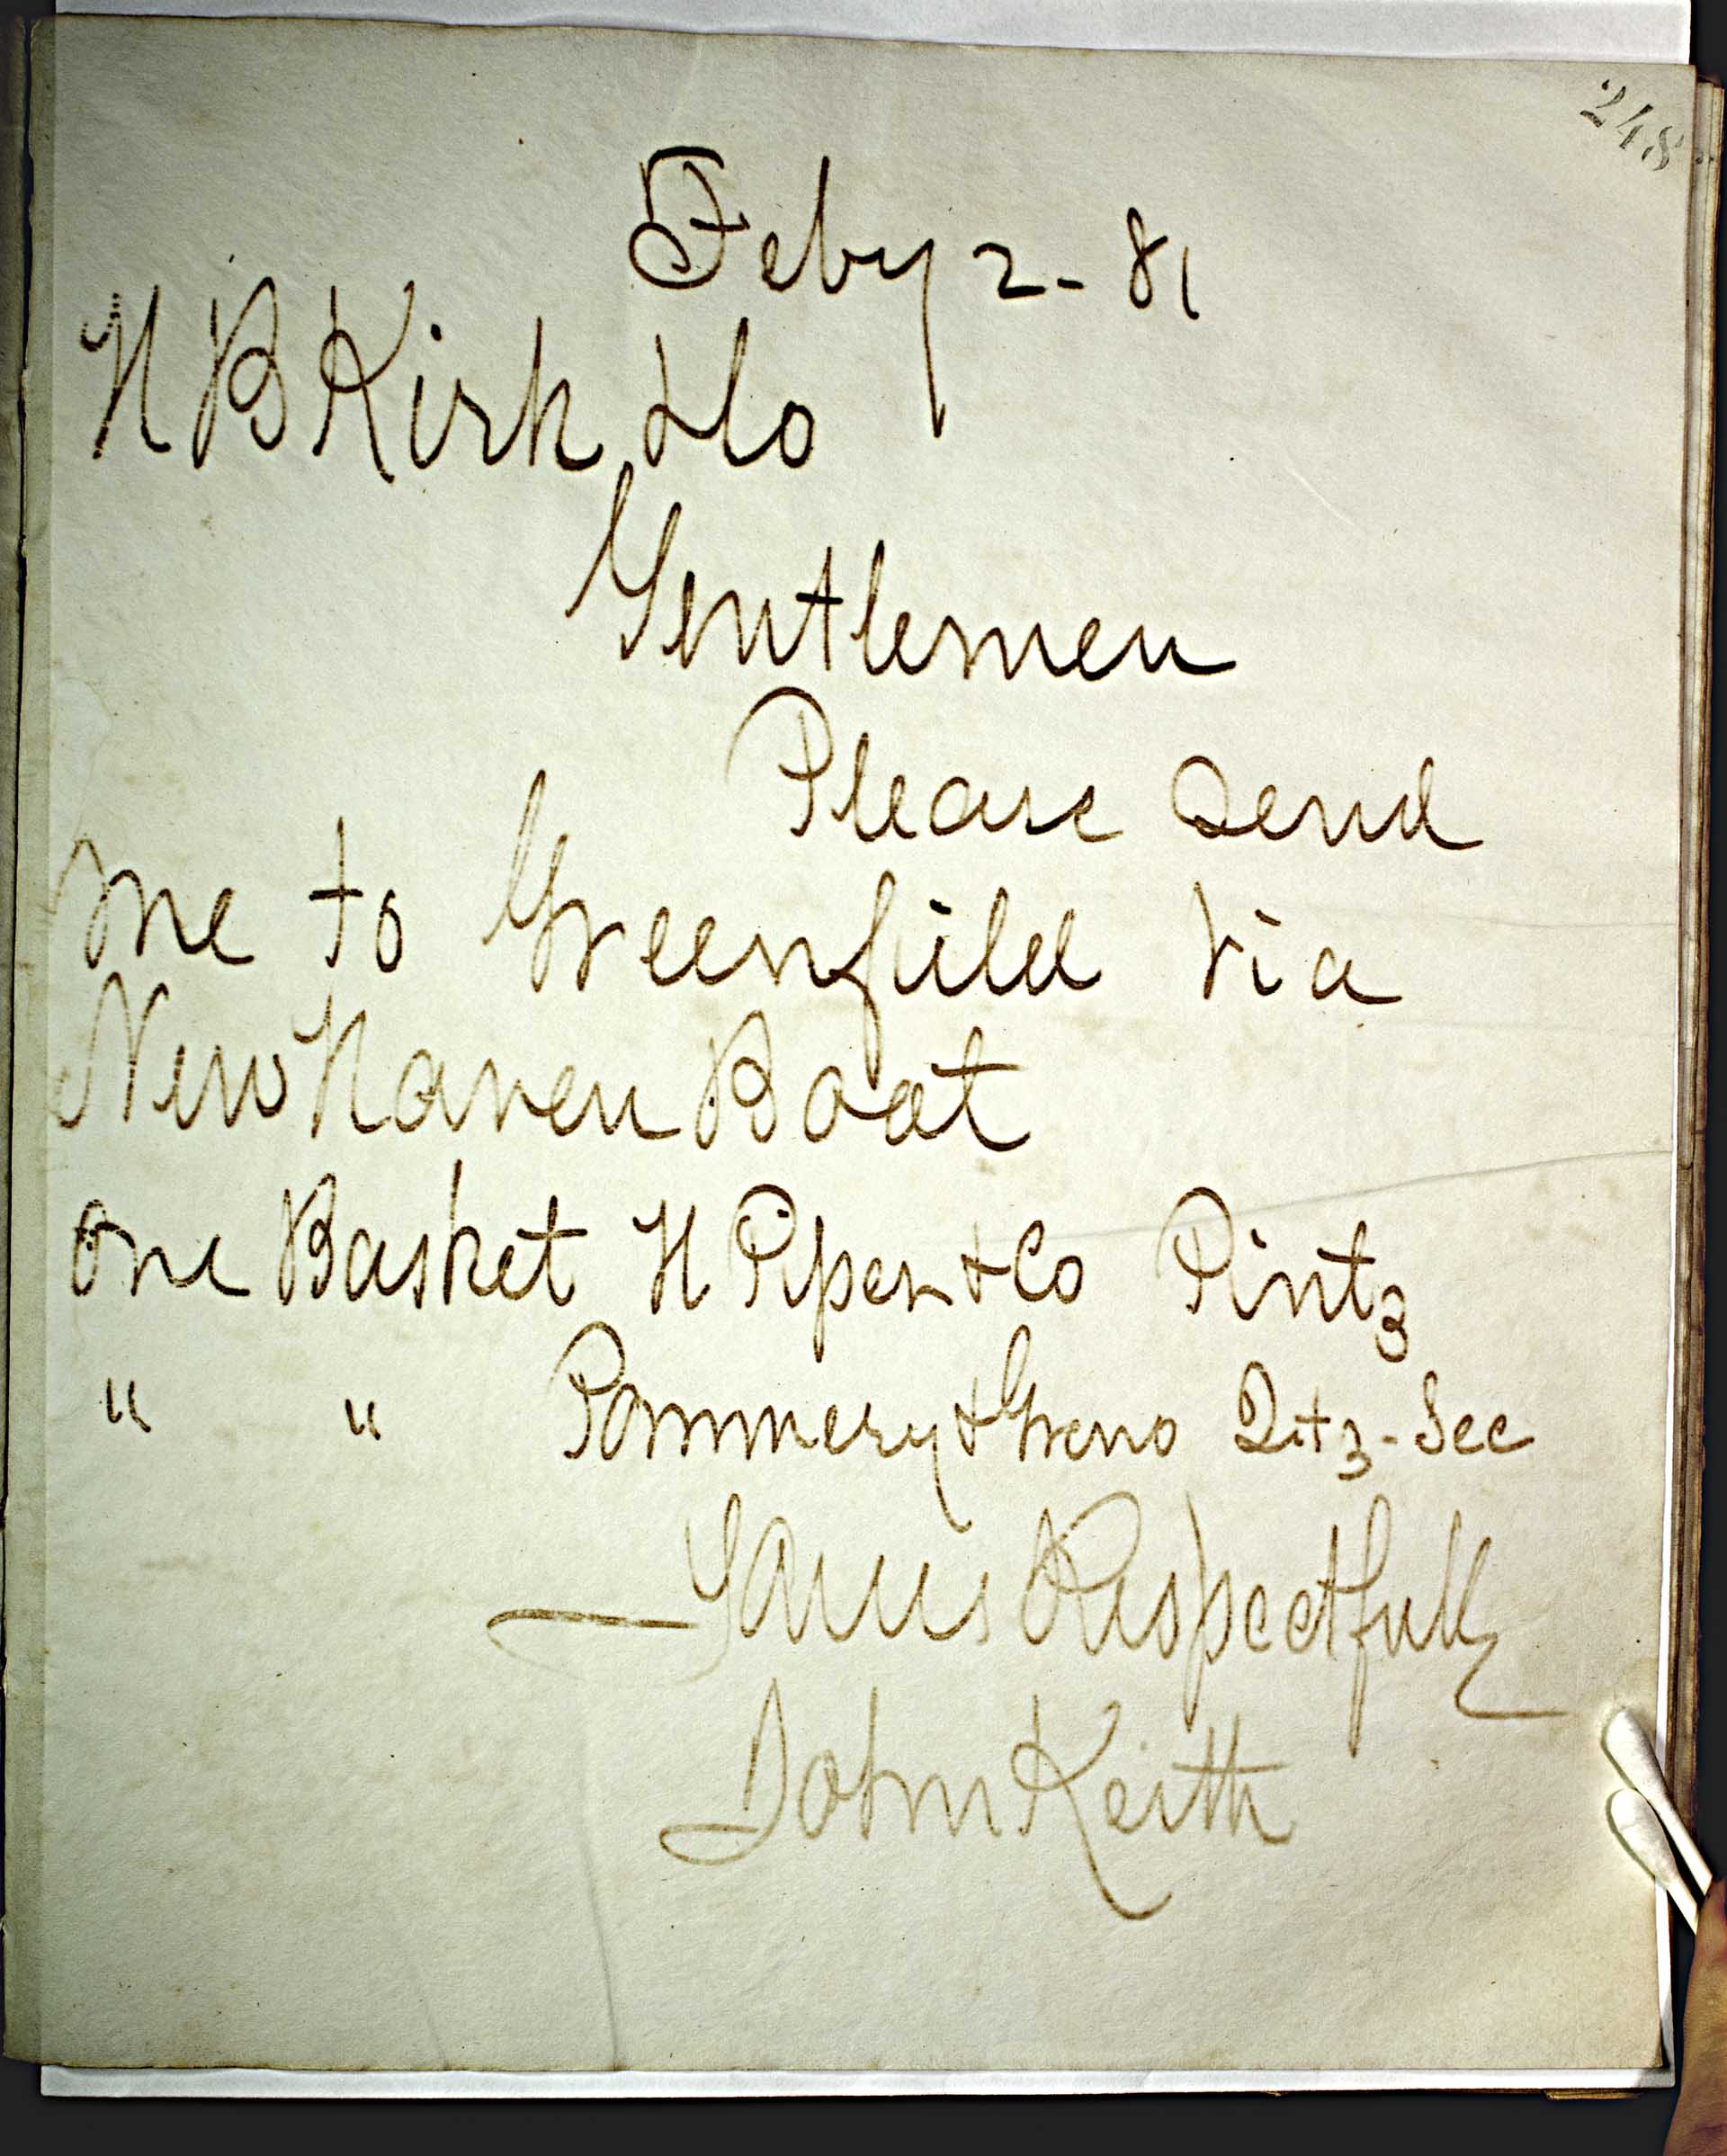 248
Feby 2 - 81
H B Kirk & Co
Gentlemen
Please Send
me to Greenfield Via
New Haven Boat
One Basket H Piper & Co Pints
" " Pommery & Greno Qts - Sec
Yours Respectfully
John Keith